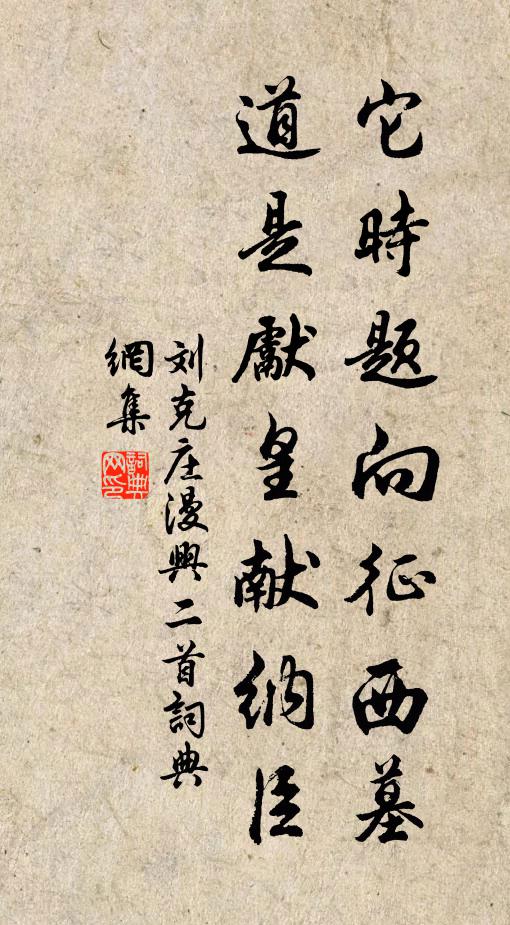 它時题向征西墓
道是獻皇献納臣
刘克庄漫興二首詞典
網集
詞典
网印